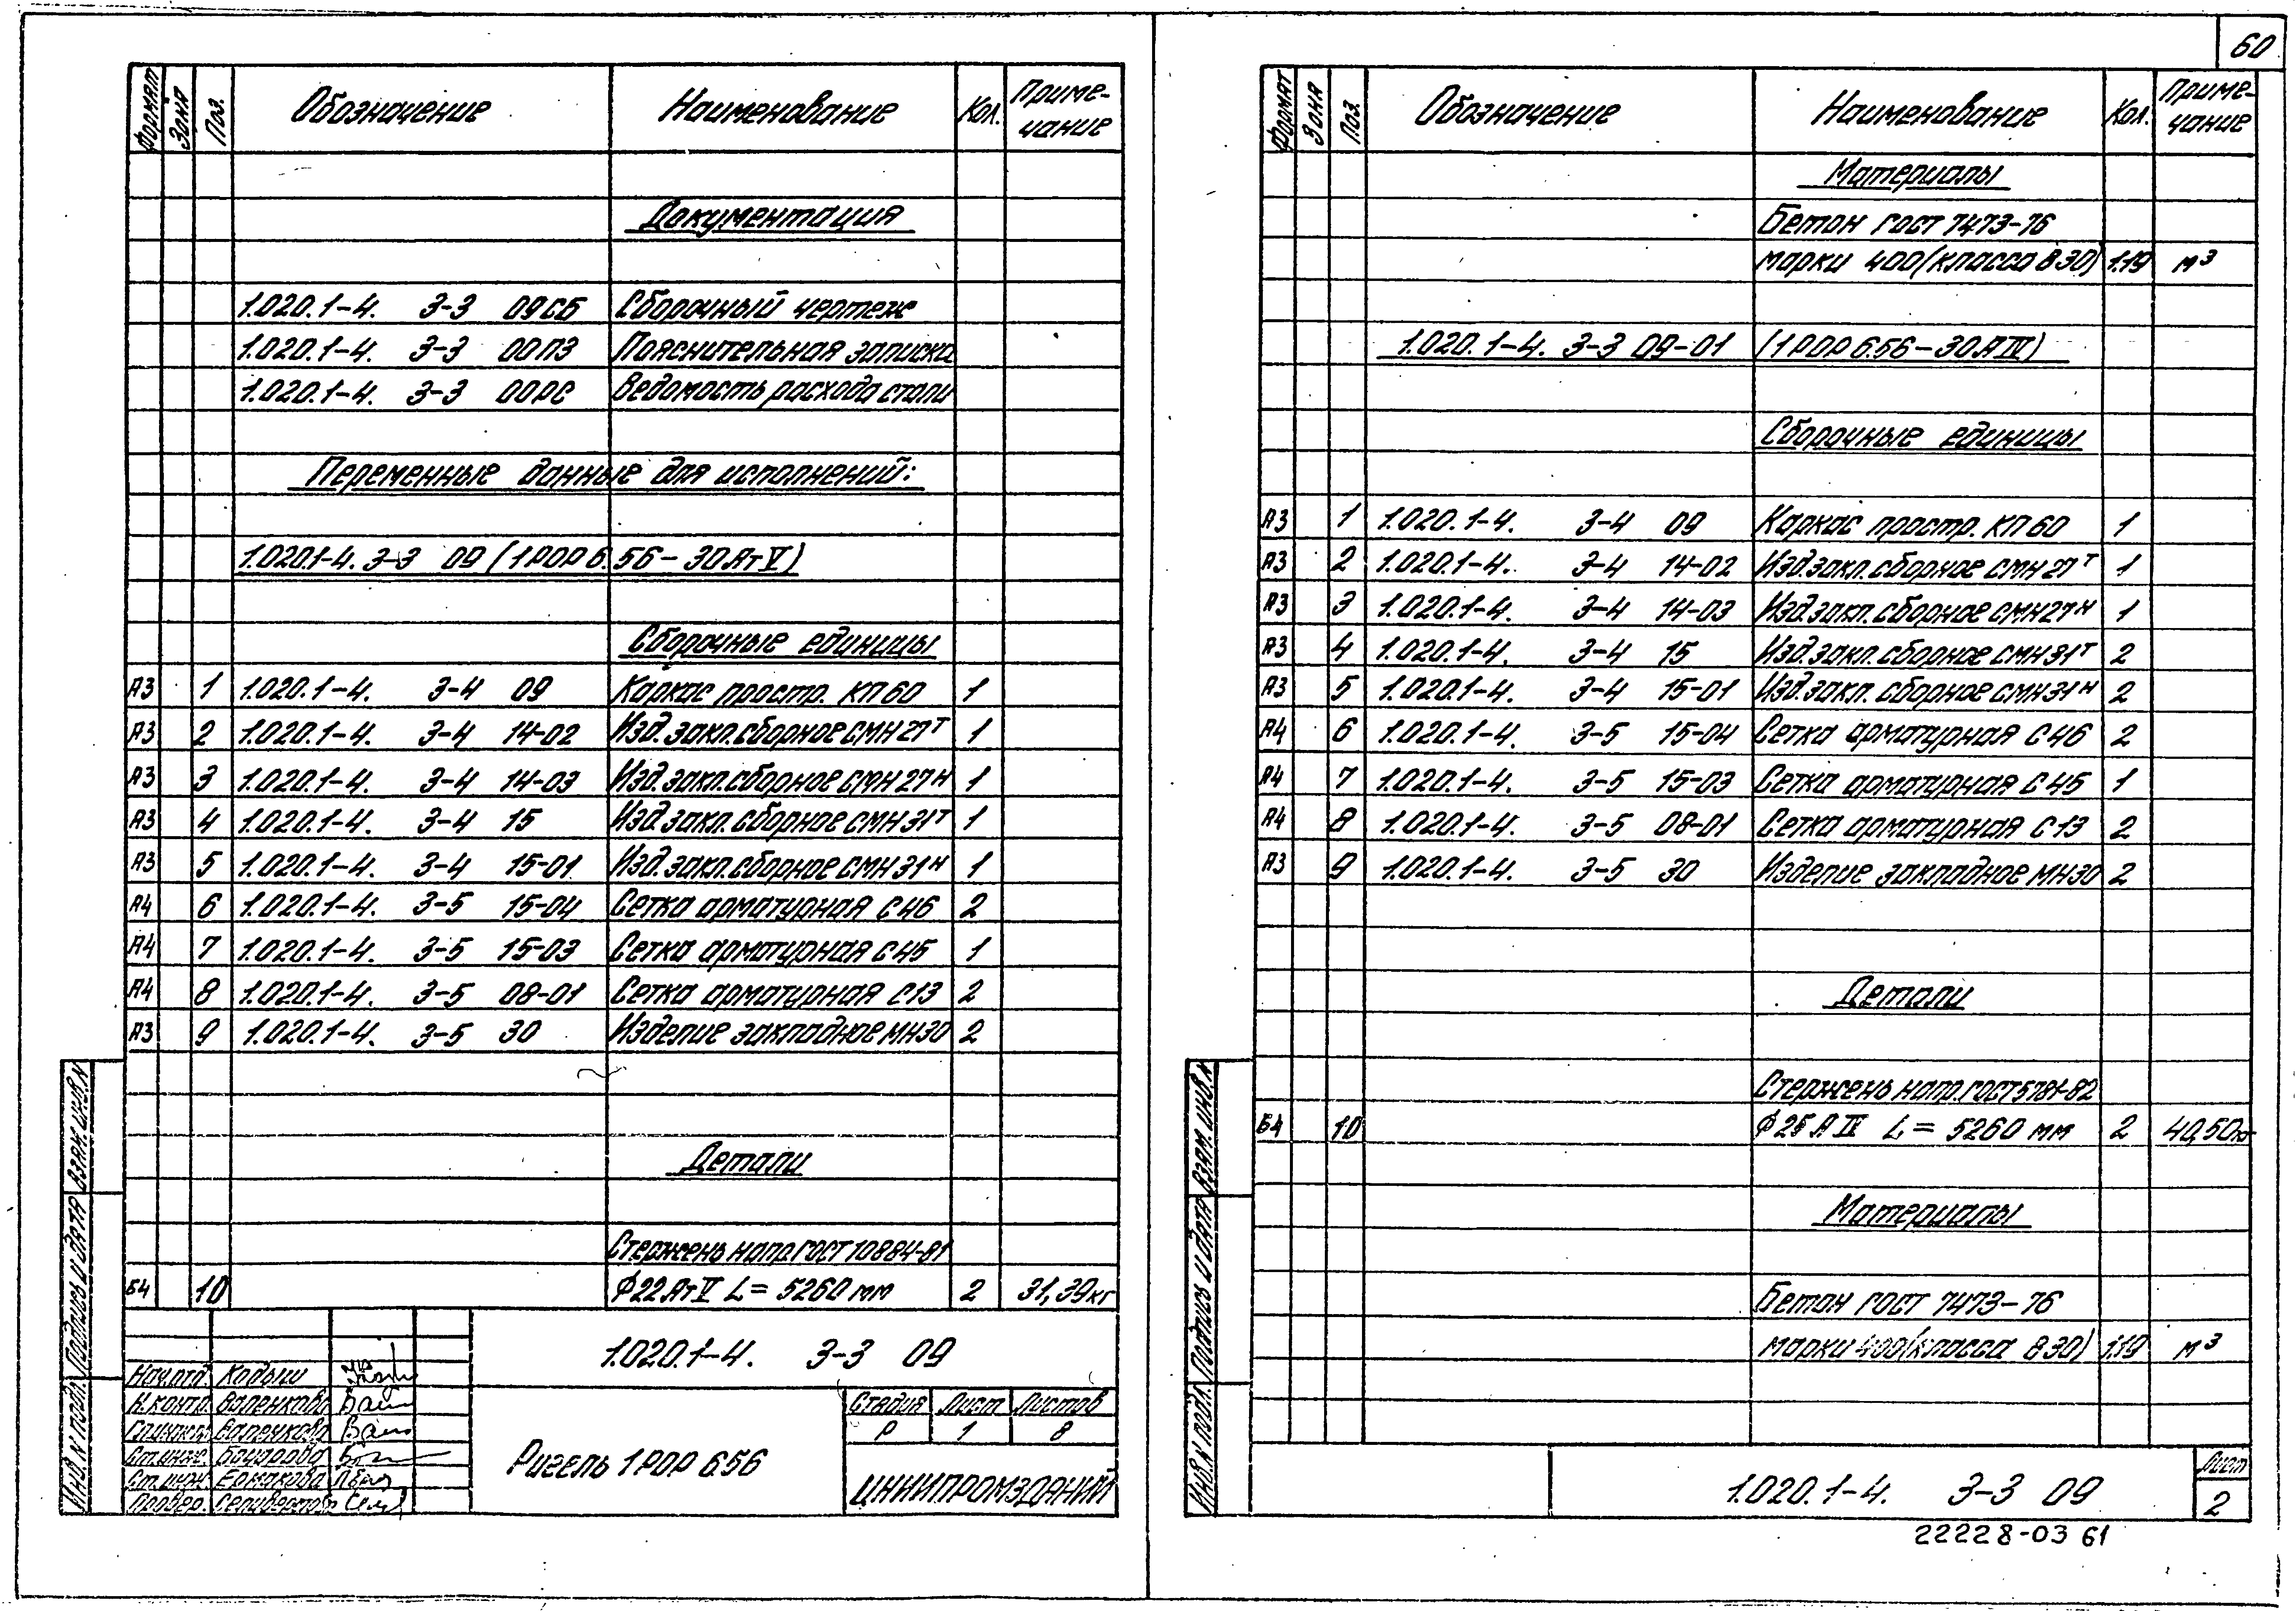 60
Формат Зона Поз. Обозначение Наименование Кол. Приме-
чание
Документация
1.020.1-4. 3-3 09СБ Сборочный чертеж
1.020.1-4. 3-3 00ПЗ Пояснительная записка
1.020.1-4. 3-3 00РС Ведомость расхода стали
Переменные данные для исполнений:
1.020.1-4. 3-3 09 (1РОР 6.56-30АтV)
Сборочные единицы
А3 1 1.020.1-4. 3-4 09 Каркас простр. КП60 1
А3 2 1.020.1-4. 3-4 14-02 Изд. закл. сборное СМН27т 1
А3 3 1.020.1-4. 3-4 14-03 Изд. закл. сборное СМН27н 1
А3 4 1.020.1-4. 3-4 15 Изд. закл. сборное СМН31т 1
А3 5 1.020.1-4. 3-4 15-01 Изд. закл. сборное СМН31н 1
А4 6 1.020.1-4. 3-5 15-04 Сетка арматурная С46 2
А4 7 1.020.1-4. 3-5 15-03 Сетка арматурная С45 1
А4 8 1.020.1-4. 3-5 08-01 Сетка арматурная С13 2
А3 9 1.020.1-4. 3-5 30 Изделие закладное МН30 2
Детали
Стержень напр. ГОСТ 10884-81
Б4 10 ф22АтV L=5260 мм 2 31,39кг
Инв. N подл. Подпись и дата Взам. инв. N
1.020.1-4. 3-3 09
Нач.отд. Кодыш
Н.контр. Валенкова
Валенкова
Ст.инж.
Ст.инж. Ермакова
Провер.
Ригель 1РОР 6.56
Стадия Лист Листов
Р 1 8
ЦНИИПРОМЗДАНИЙ
Формат Зона Поз. Обозначение Наименование Кол. Приме-
чание
Материалы
Бетон ГОСТ 7473-76
марки 400 (класса В30) 1.19 м³
1.020.1-4. 3-3 09-01 (1РОР 6.56-30АIV)
Сборочные единицы
А3 1 1.020.1-4. 3-4 09 Каркас простр. КП60 1
А3 2 1.020.1-4. 3-4 14-02 Изд. закл. сборное СМН27т 1
А3 3 1.020.1-4. 3-4 14-03 Изд. закл. сборное СМН27н 1
А3 4 1.020.1-4. 3-4 15 Изд. закл. сборное СМН31т 2
А3 5 1.020.1-4. 3-4 15-01 Изд. закл. сборное СМН31н 2
А4 6 1.020.1-4. 3-5 15-04 Сетка арматурная С46 2
А4 7 1.020.1-4. 3-5 15-03 Сетка арматурная С45 1
А4 8 1.020.1-4. 3-5 08-01 Сетка арматурная С13 2
А3 9 1.020.1-4. 3-5 30 Изделие закладное МН30 2
Детали
Стержень напр. ГОСТ 5781-82
Б4 10 ф25АIV L=5260 мм 2 40,50кг
Материалы
Бетон ГОСТ 7473-76
марки 400 (класса В30) 1.19 м³
Инв. N подл. Подпись и дата Взам. инв. N
1.020.1-4. 3-3 09
Лист
2
22228-03 61